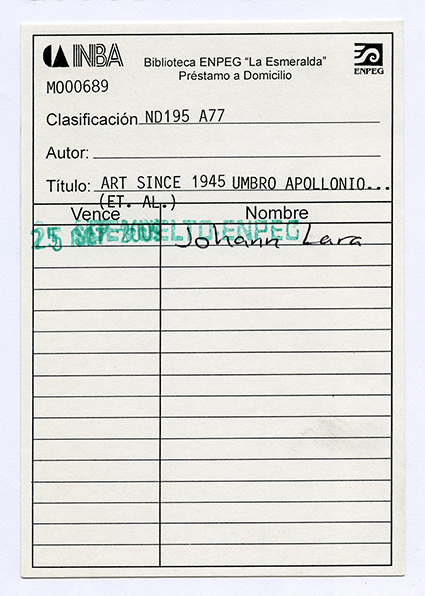 INBA
Biblioteca ENPEG "La Esmeralda"
Préstamo a Domicilio
ENPEG
M000689
Clasificación ND195 A77
Autor:
Título: ART SINCE 1945 UMBRO APOLLONIO...
(ET. AL.)
Vence Nombre
25 2009 ENPEG
Johann Lara